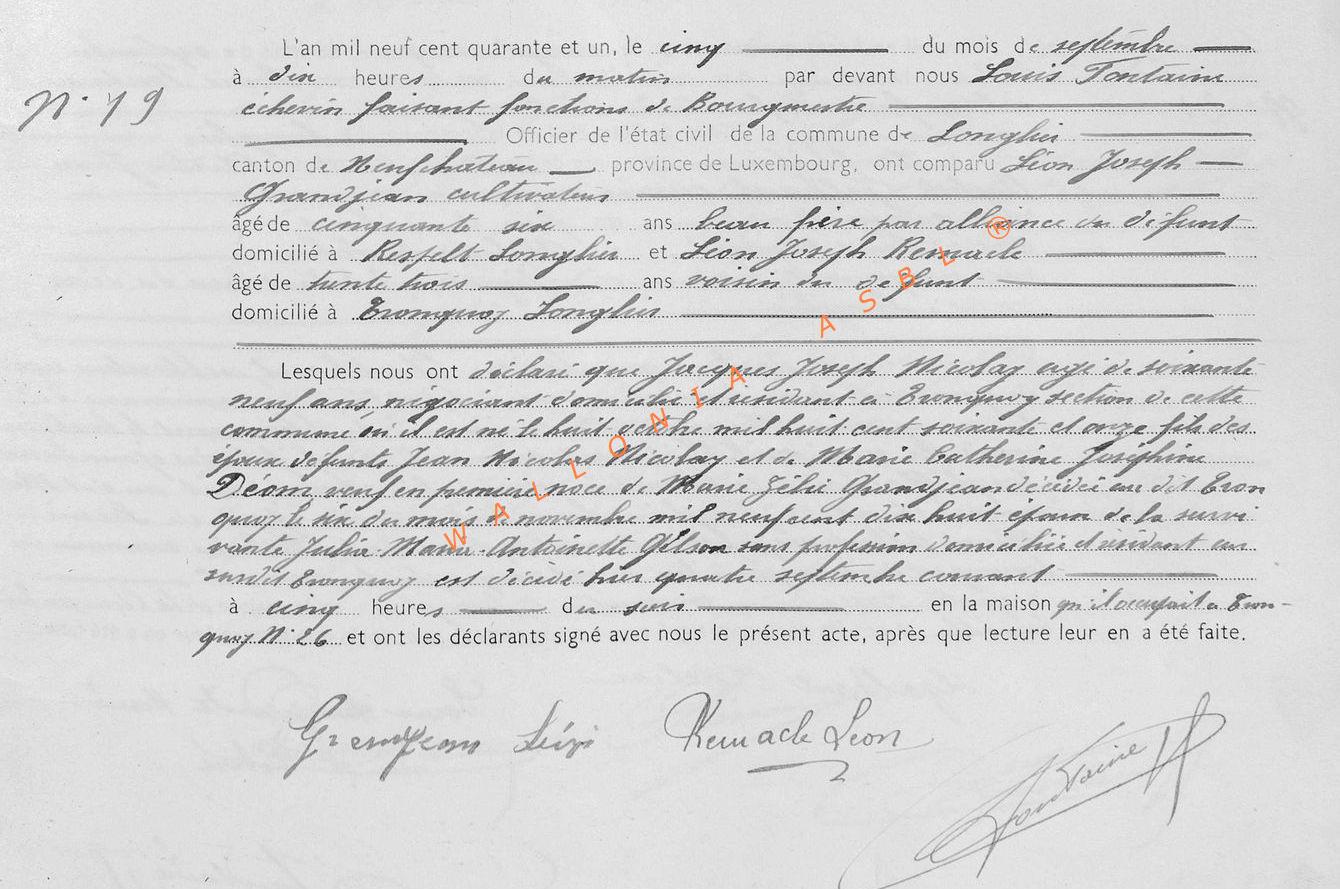 L'an mil neuf cent quarante et un, le cinq du mois de septembre
à dix heures du matin par devant nous Louis Fontaine
N° 79
échevin faisant fonctions de Bourgmestre
Officier de l'état civil de la commune de Longlier
canton de Neufchateau province de Luxembourg, ont comparu Léon Joseph
Grandjean cultivateur
âgé de cinquante six ans beau frère par alliance du défunt
domicilié à Respelt Longlier et Léon Joseph Remacle
âgé de trente trois ans voisin du défunt
domicilié à Tronquoy Longlier
Lesquels nous ont déclaré que Jacques Joseph Nicolay agé de soixante
neuf ans, négociant domicilié et résidant à Tronquoy section de cette
commune où il est né le huit octobre mil huit cent soixante et onze fils des
époux défunts Jean Nicolas Nicolay et de Marie Catherine Joséphine
Deom, veuf en première noce de Marie Grandjean décédée au dit Tron
quoy le six du mois de novembre mil neuf cent dix huit époux de la survi
vante Julia Maria Antoinette Gilson sans profession domiciliée et résidant au
susdit Tronquoy est décédé hier quatre septembre courant
à cinq heures du soir en la maison qu'il occupait à Tron-
quoy N° 26 et ont les déclarants signé avec nous le présent acte, après que lecture leur en a été faite.
Grandjean Remacle Léon
Fontaine
WALLONIA ASBL ®